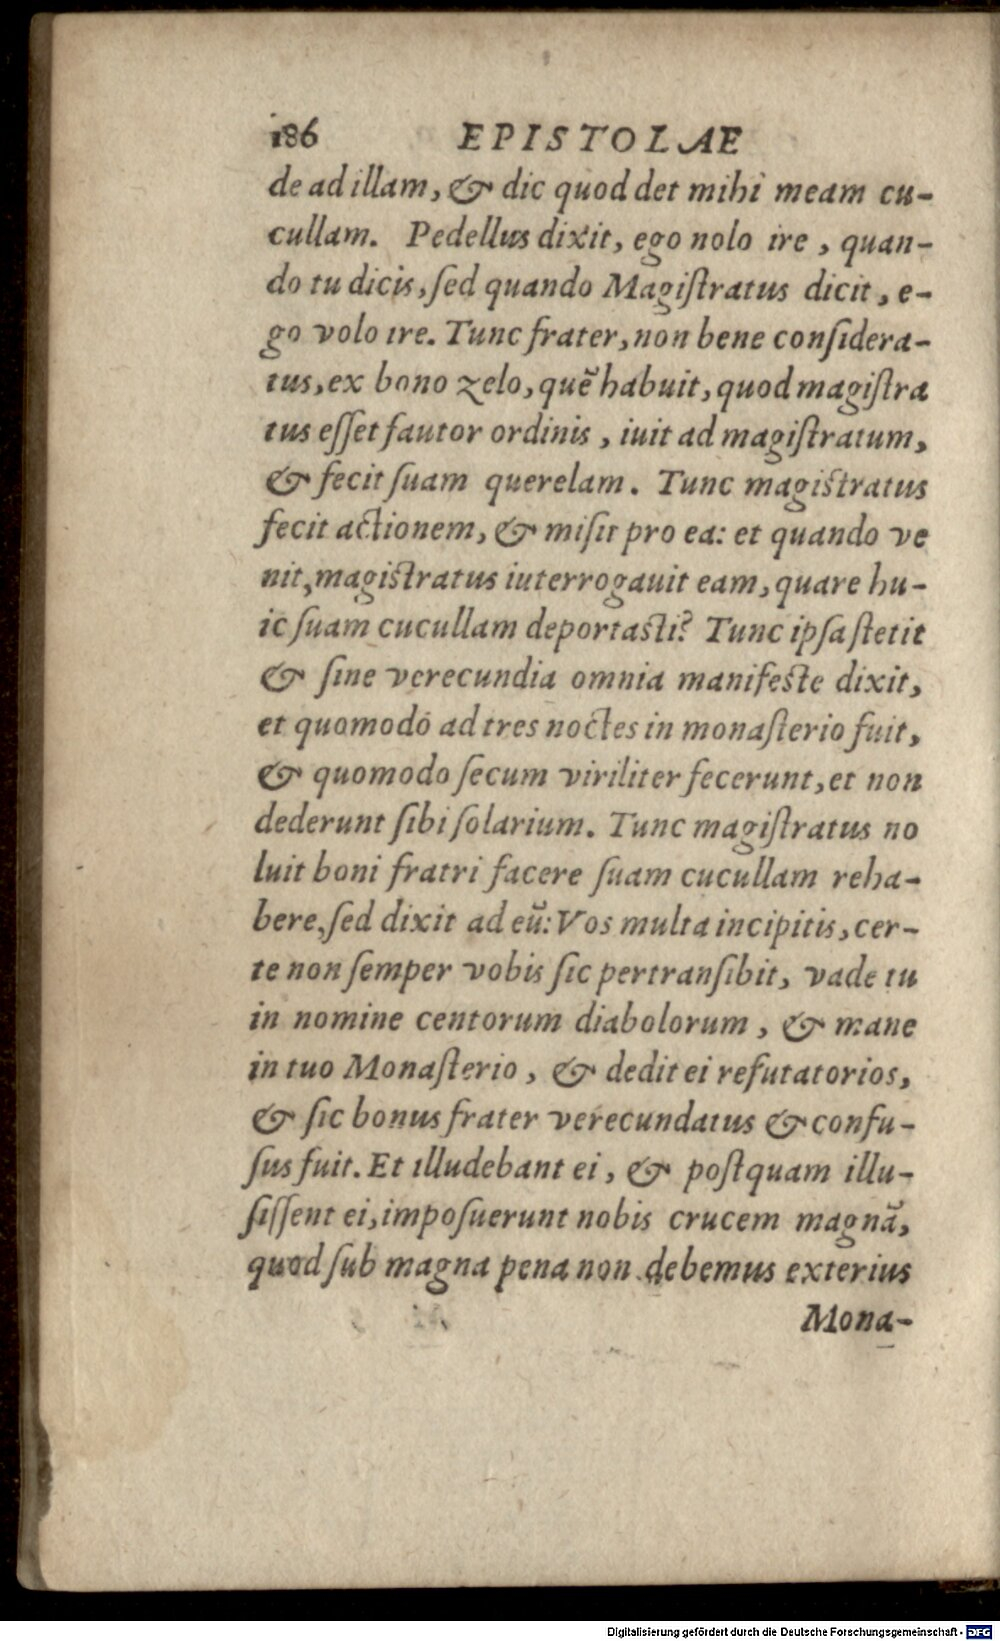 186 EPISTOLAE
de ad illam, & dic quod det mihi meam cu-
cullam. Pedellus dixit, ego nolo ire, quan-
do tu dicis, ſed quando Magiſtratus dicit, e-
go volo ire. Tunc frater, non bene conſidera-
tus, ex bono zelo, quẽ habuit, quod magiſtra
tus eſſet fautor ordinis, iuit ad magiſtratum,
& fecit ſuam querelam. Tunc magiſtratus
fecit actionem, & miſit pro ea: et quando ve
nit, magiſtratus iuterrogauit eam, quare hu-
ic ſuam cucullam deportaſti? Tunc ipſa ſtetit
& ſine verecundia omnia manifeſte dixit,
et quomodo ad tres noctes in monaſterio fuit,
& quomodo ſecum viriliter fecerunt, et non
dederunt ſibi ſolarium. Tunc magiſtratus no
luit boni fratri facere ſuam cucullam reha-
bere, ſed dixit ad eũ: Vos multa incipitis, cer-
te non ſemper vobis ſic pertranſibit, vade tu
in nomine centorum diabolorum, & mane
in tuo Monaſterio, & dedit ei refutatorios,
& ſic bonus frater verecundatus & confu-
ſus fuit. Et illudebant ei, & poſtquam illu-
ſiſſent ei, impoſuerunt nobis crucem magnã,
quod ſub magna pena non debemus exterius
Mona-
Digitalisierung gefördert durch die Deutsche Forschungsgemeinschaft - DFG